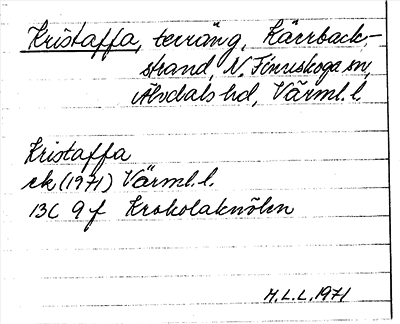 Kristaffa, terräng, Kärrback-
strand, N. Finnskoga sn,
Älvdals hd, Värml. l.
Kristaffa
ek (1971) Värml. l.
13C 9f Krokolaknölen
M.L.L. 1971